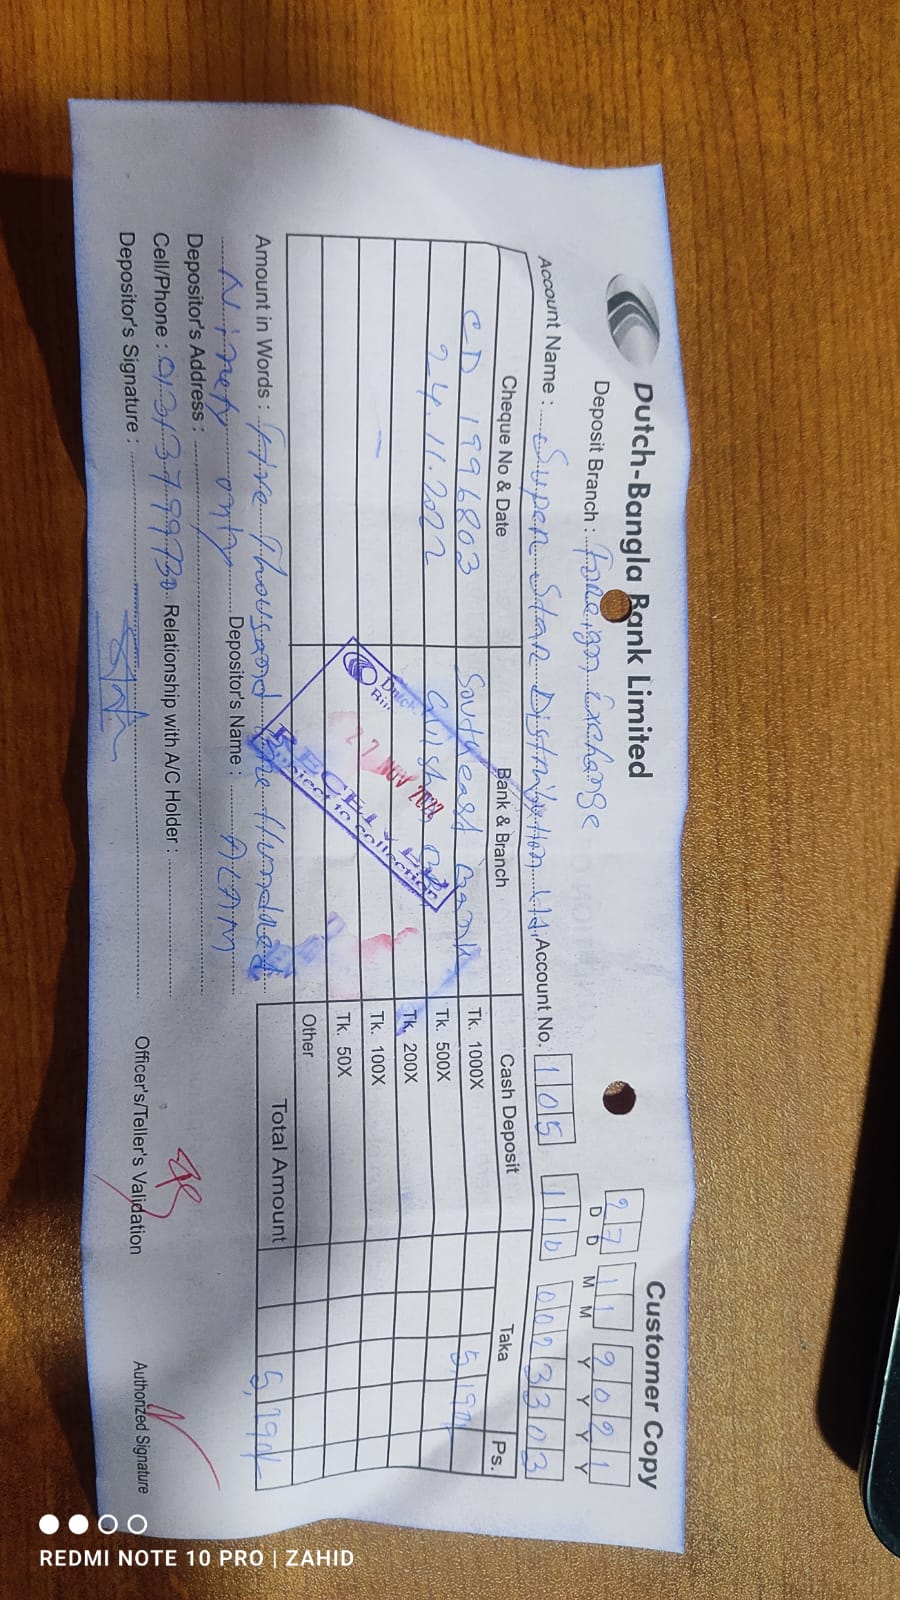 Dutch-Bangla Bank Limited
Customer Copy
Deposit Branch : Foreign Exchange
27 11 2021
D D M M Y Y Y Y
Account Name : Super Star Distribution Ltd. Account No. 105 110 0023303
Cheque No & Date Bank & Branch Cash Deposit Taka Ps.
CD 1996803 South east Bank Tk. 1000X 5,190/-
24.11.2022 Gulshan Tk. 500X
Tk. 200X
Tk. 100X
Tk. 50X
Other
27 NOV 2022
RECEIVED
Subject to collection
Amount in Words : Five Thousand One Hundred Total Amount 5,190/-
Ninety only Depositor's Name : ALAM
Depositor's Address :
Cell/Phone : Relationship with A/C Holder :
Depositor's Signature :
Officer's/Teller's Validation
Authorized Signature
REDMI NOTE 10 PRO | ZAHID